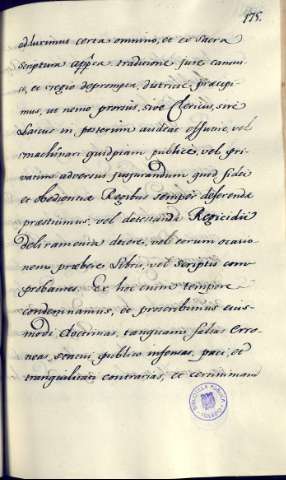 175.
adduximus certa omnino, et ex Sacra
scriptura app.ca traditione jure canoni-
co, et regio deprompta, districte præcipi-
mus, ut nemo prorsus, sive Clericus, sive
Laicus in posterum audeat effutire, vel
machinari quidpiam publice, vel pri-
vatim adversus jusjurandum quod fidei
et obedientiæ Regibus semper deferendæ
præstimus, vel detestanda Regicidii
deliramenta docere, vel eorum
præbere Libris, vel scriptis com-
probantes. Ex hoc enim tempore
condemnamus, et proscribimus eius-
modi doctrinas, tanquam falsas Erro-
neas, statui publico infensas, paci, et
tranquilitati contrarias, et
BIBLIOTECA